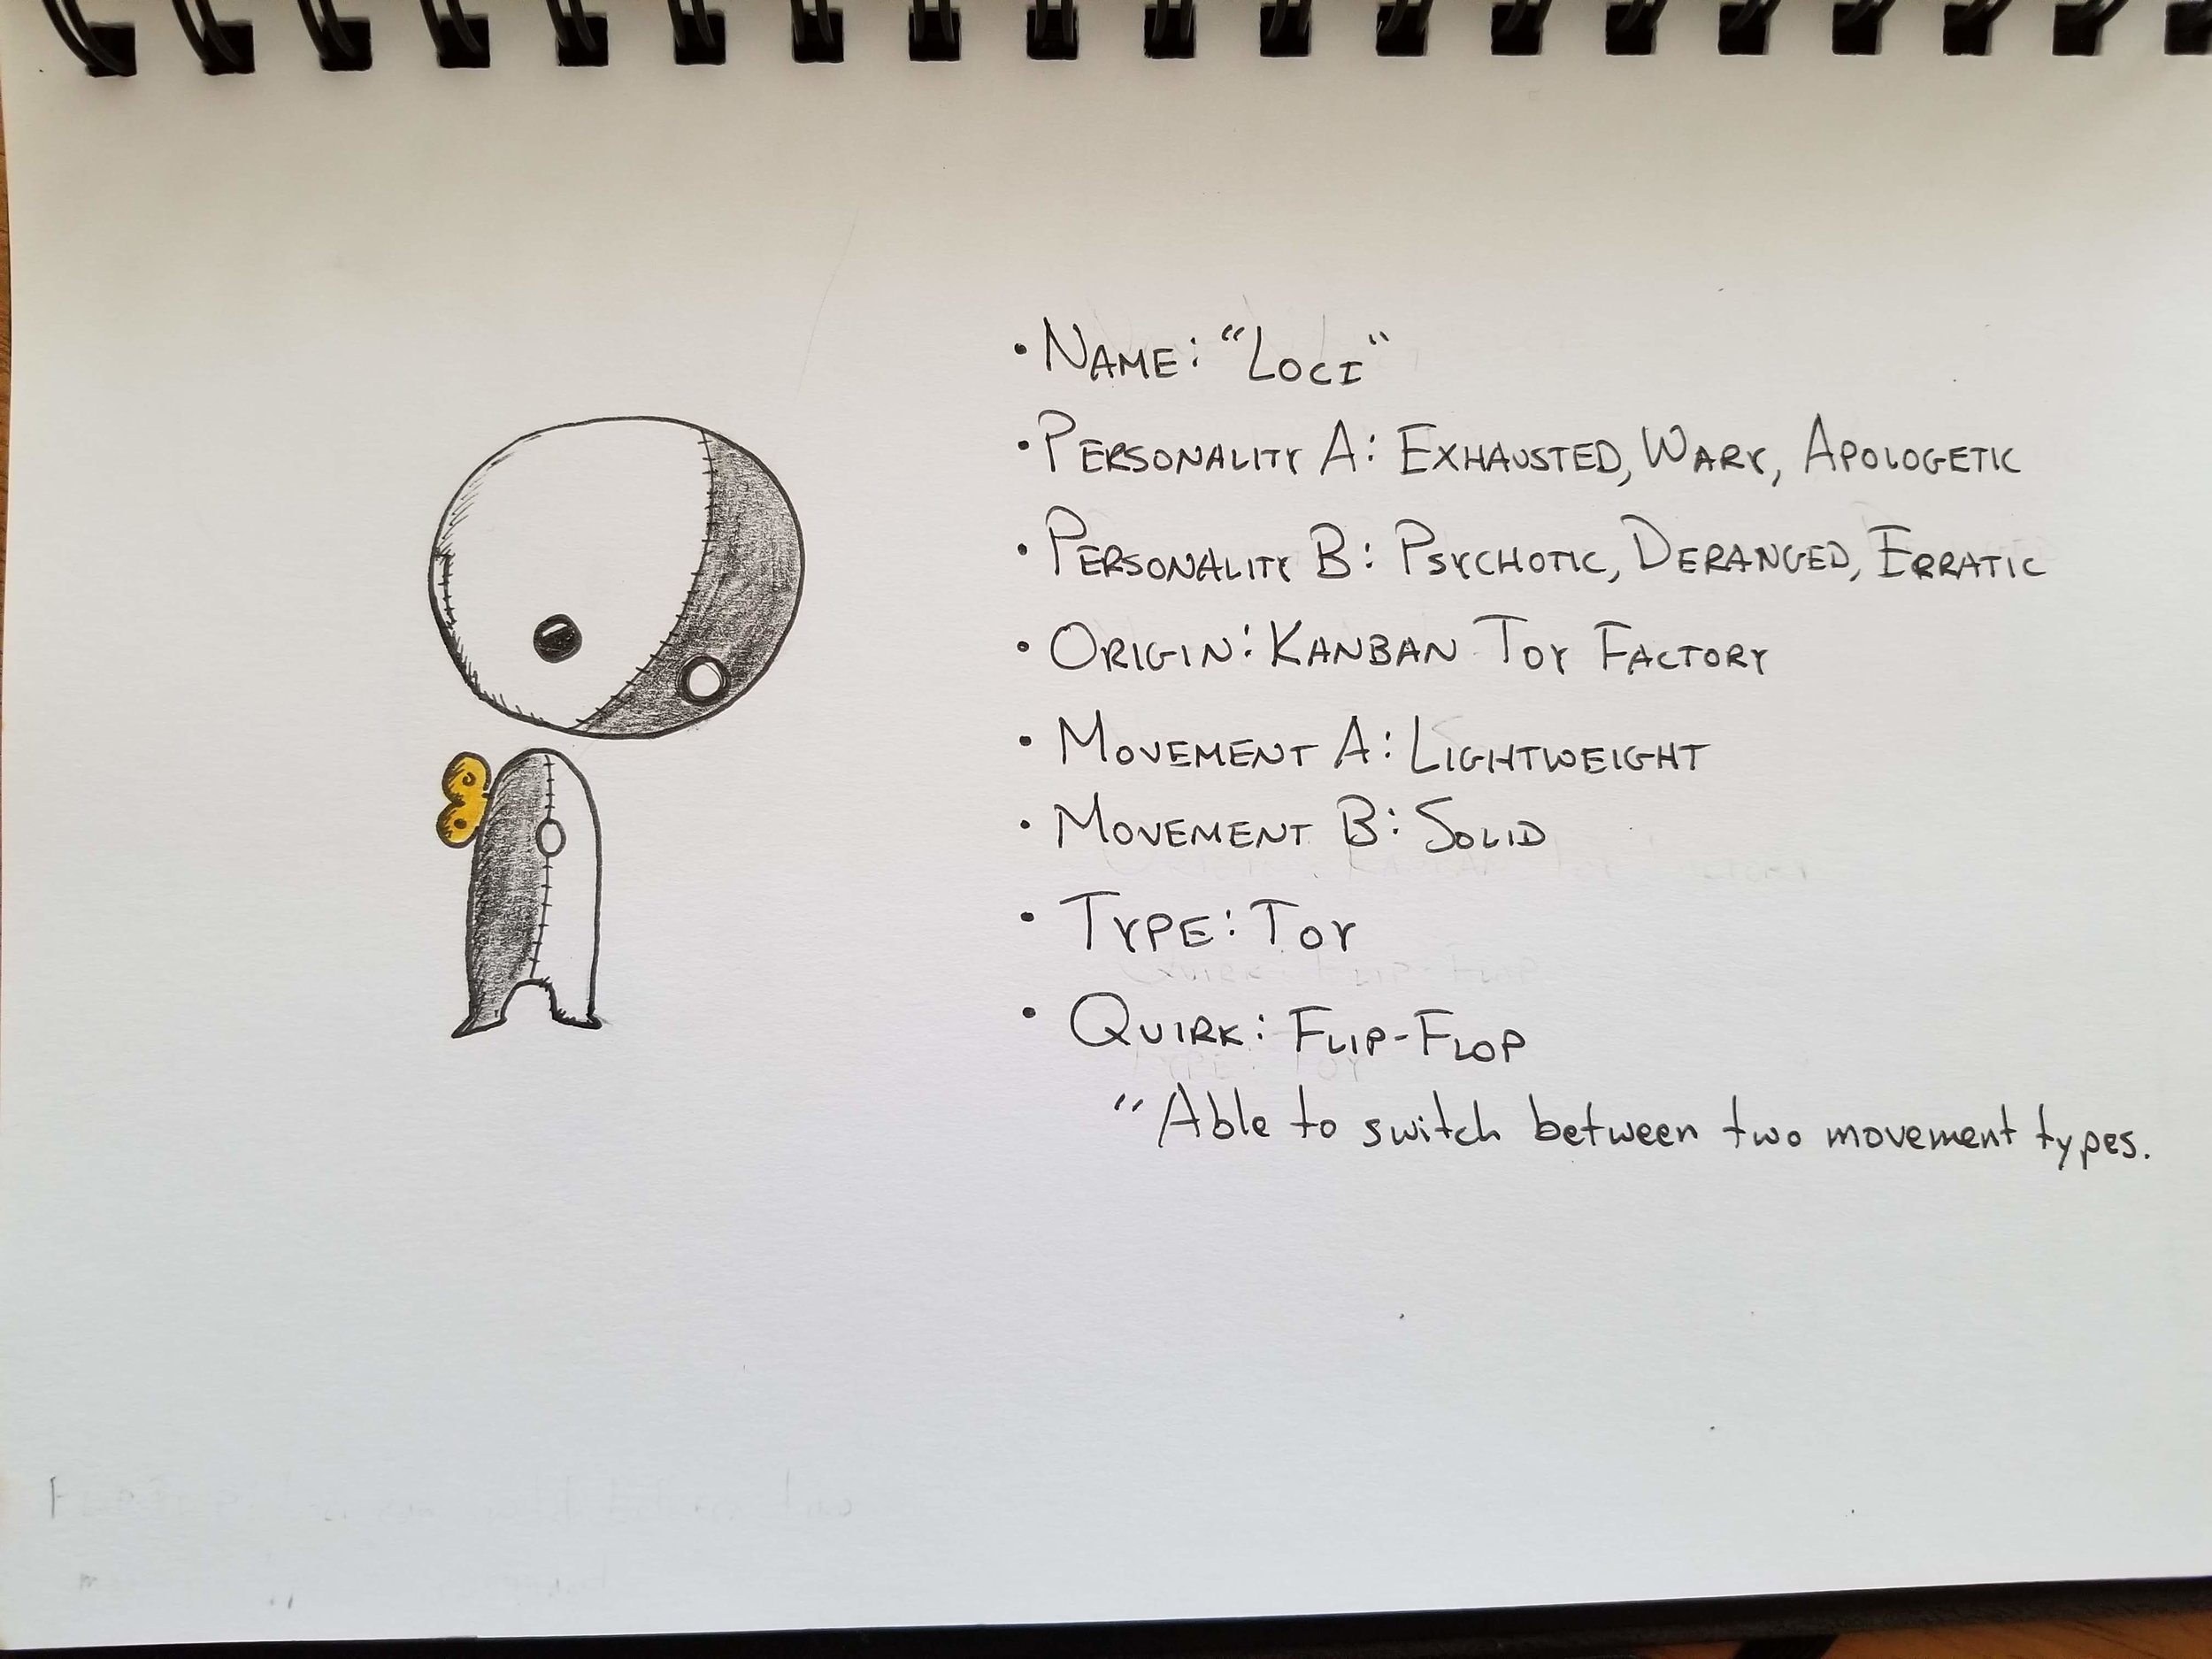 • NAME: "LOCI"
• PERSONALITY A: EXHAUSTED, WARY, APOLOGETIC
• PERSONALITY B: PSYCHOTIC, DERANGED, ERRATIC
• ORIGIN: KANBAN TOY FACTORY
• MOVEMENT A: LIGHTWEIGHT
• MOVEMENT B: SOLID
• TYPE: TOY
• QUIRK: FLIP-FLOP
"Able to switch between two movement types.